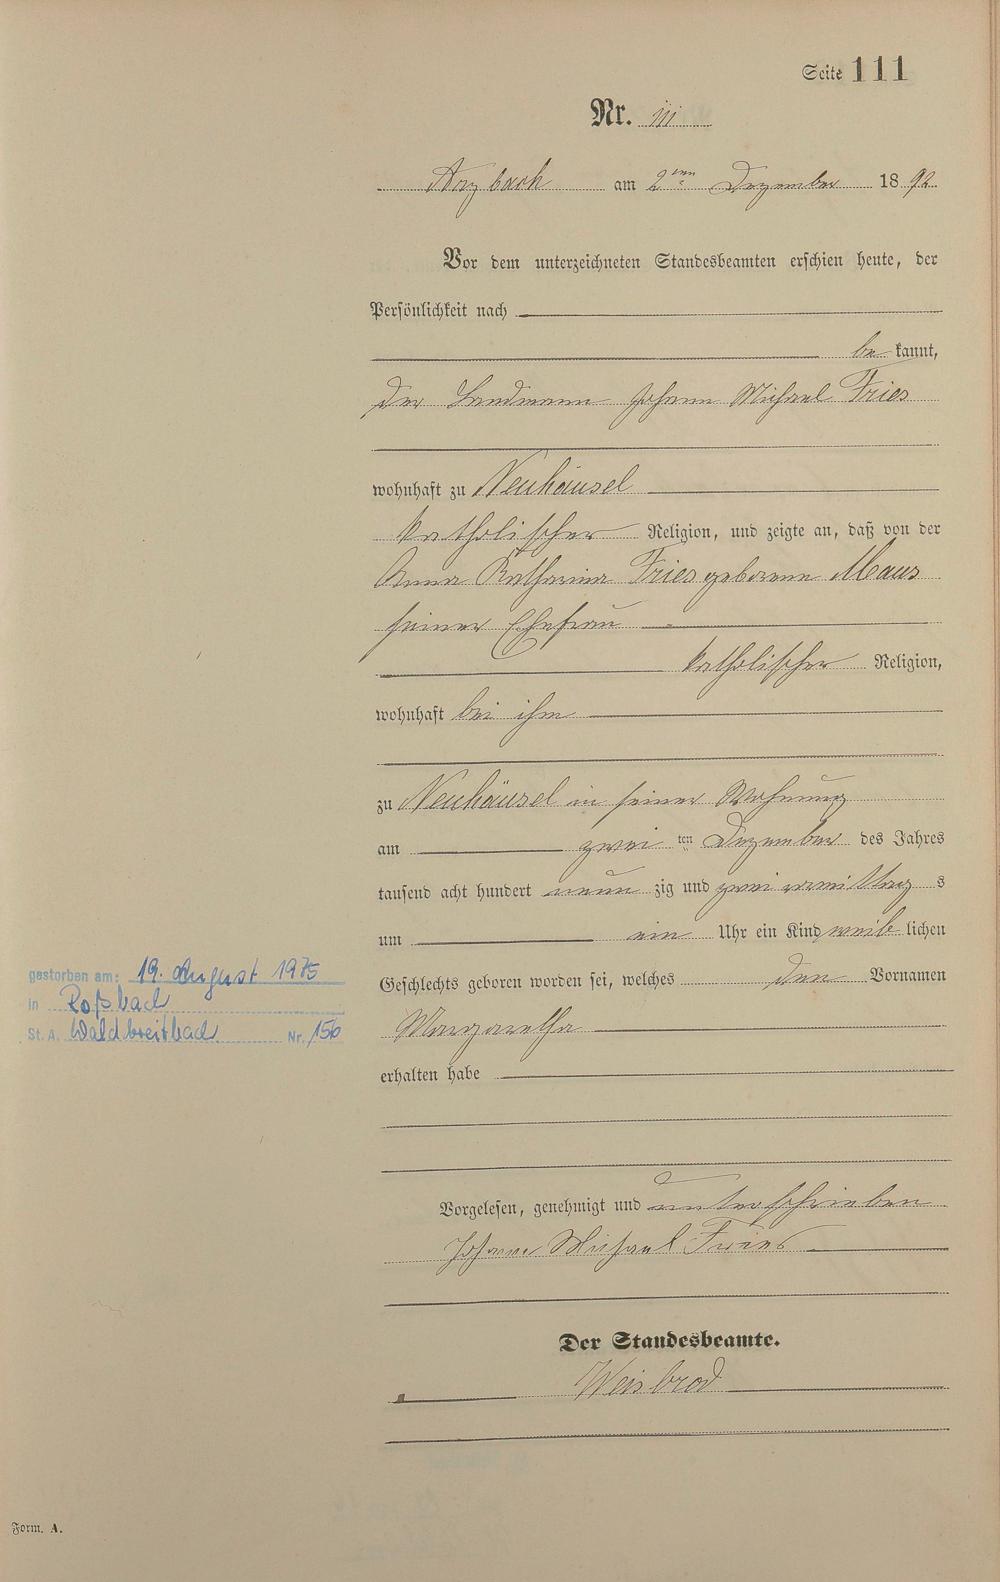 Seite 111
Nr. 111
Arzbach am 2ten Dezember 1892
Vor dem unterzeichneten Standesbeamten erschien heute, der
Persönlichkeit nach
bekannt,
der Landmann Johann Michael Fries
wohnhaft zu Neuhäusel
katholischer Religion, und zeigte an, daß von der
Anna Katharina Fries geborenen Maus
seiner Ehefrau
katholischer Religion,
wohnhaft bei ihm
zu Neuhäusel in seiner Wohnung
am zweiten Dezember des Jahres
tausend acht hundert neunzig und zwei vormittags
um ein Uhr ein Kind weiblichen
Geschlechts geboren worden sei, welches den Vornamen
Margaretha
erhalten habe
gestorben am: 19. August 1975
in Roßbach
St. A. Waldbreitbach Nr. 156
Vorgelesen, genehmigt und unterschrieben
Johann Michael Fries
Der Standesbeamte.
Weisbrod
Form. A.